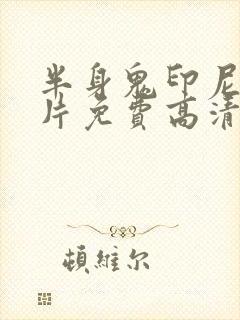 半身鬼印尼
片免費高清
頓維尔